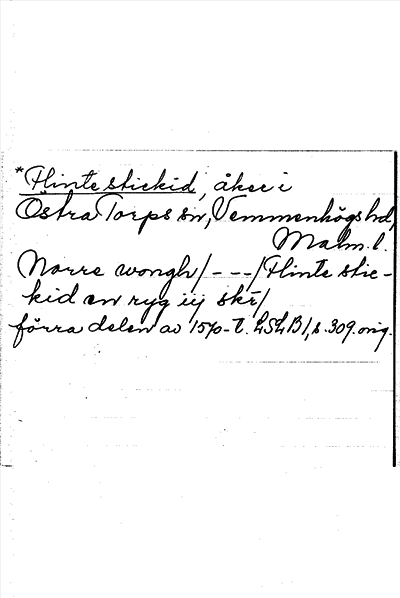 *Hinte stickid, åker i
Östra Torps sn, Vemmenhögs hd,
Malm. l.
Norre wongh/ - - -/Hinte stic-
kid en ryg iij sker/
förra delen av 1570-t. LSLB 1, s. 309. orig.